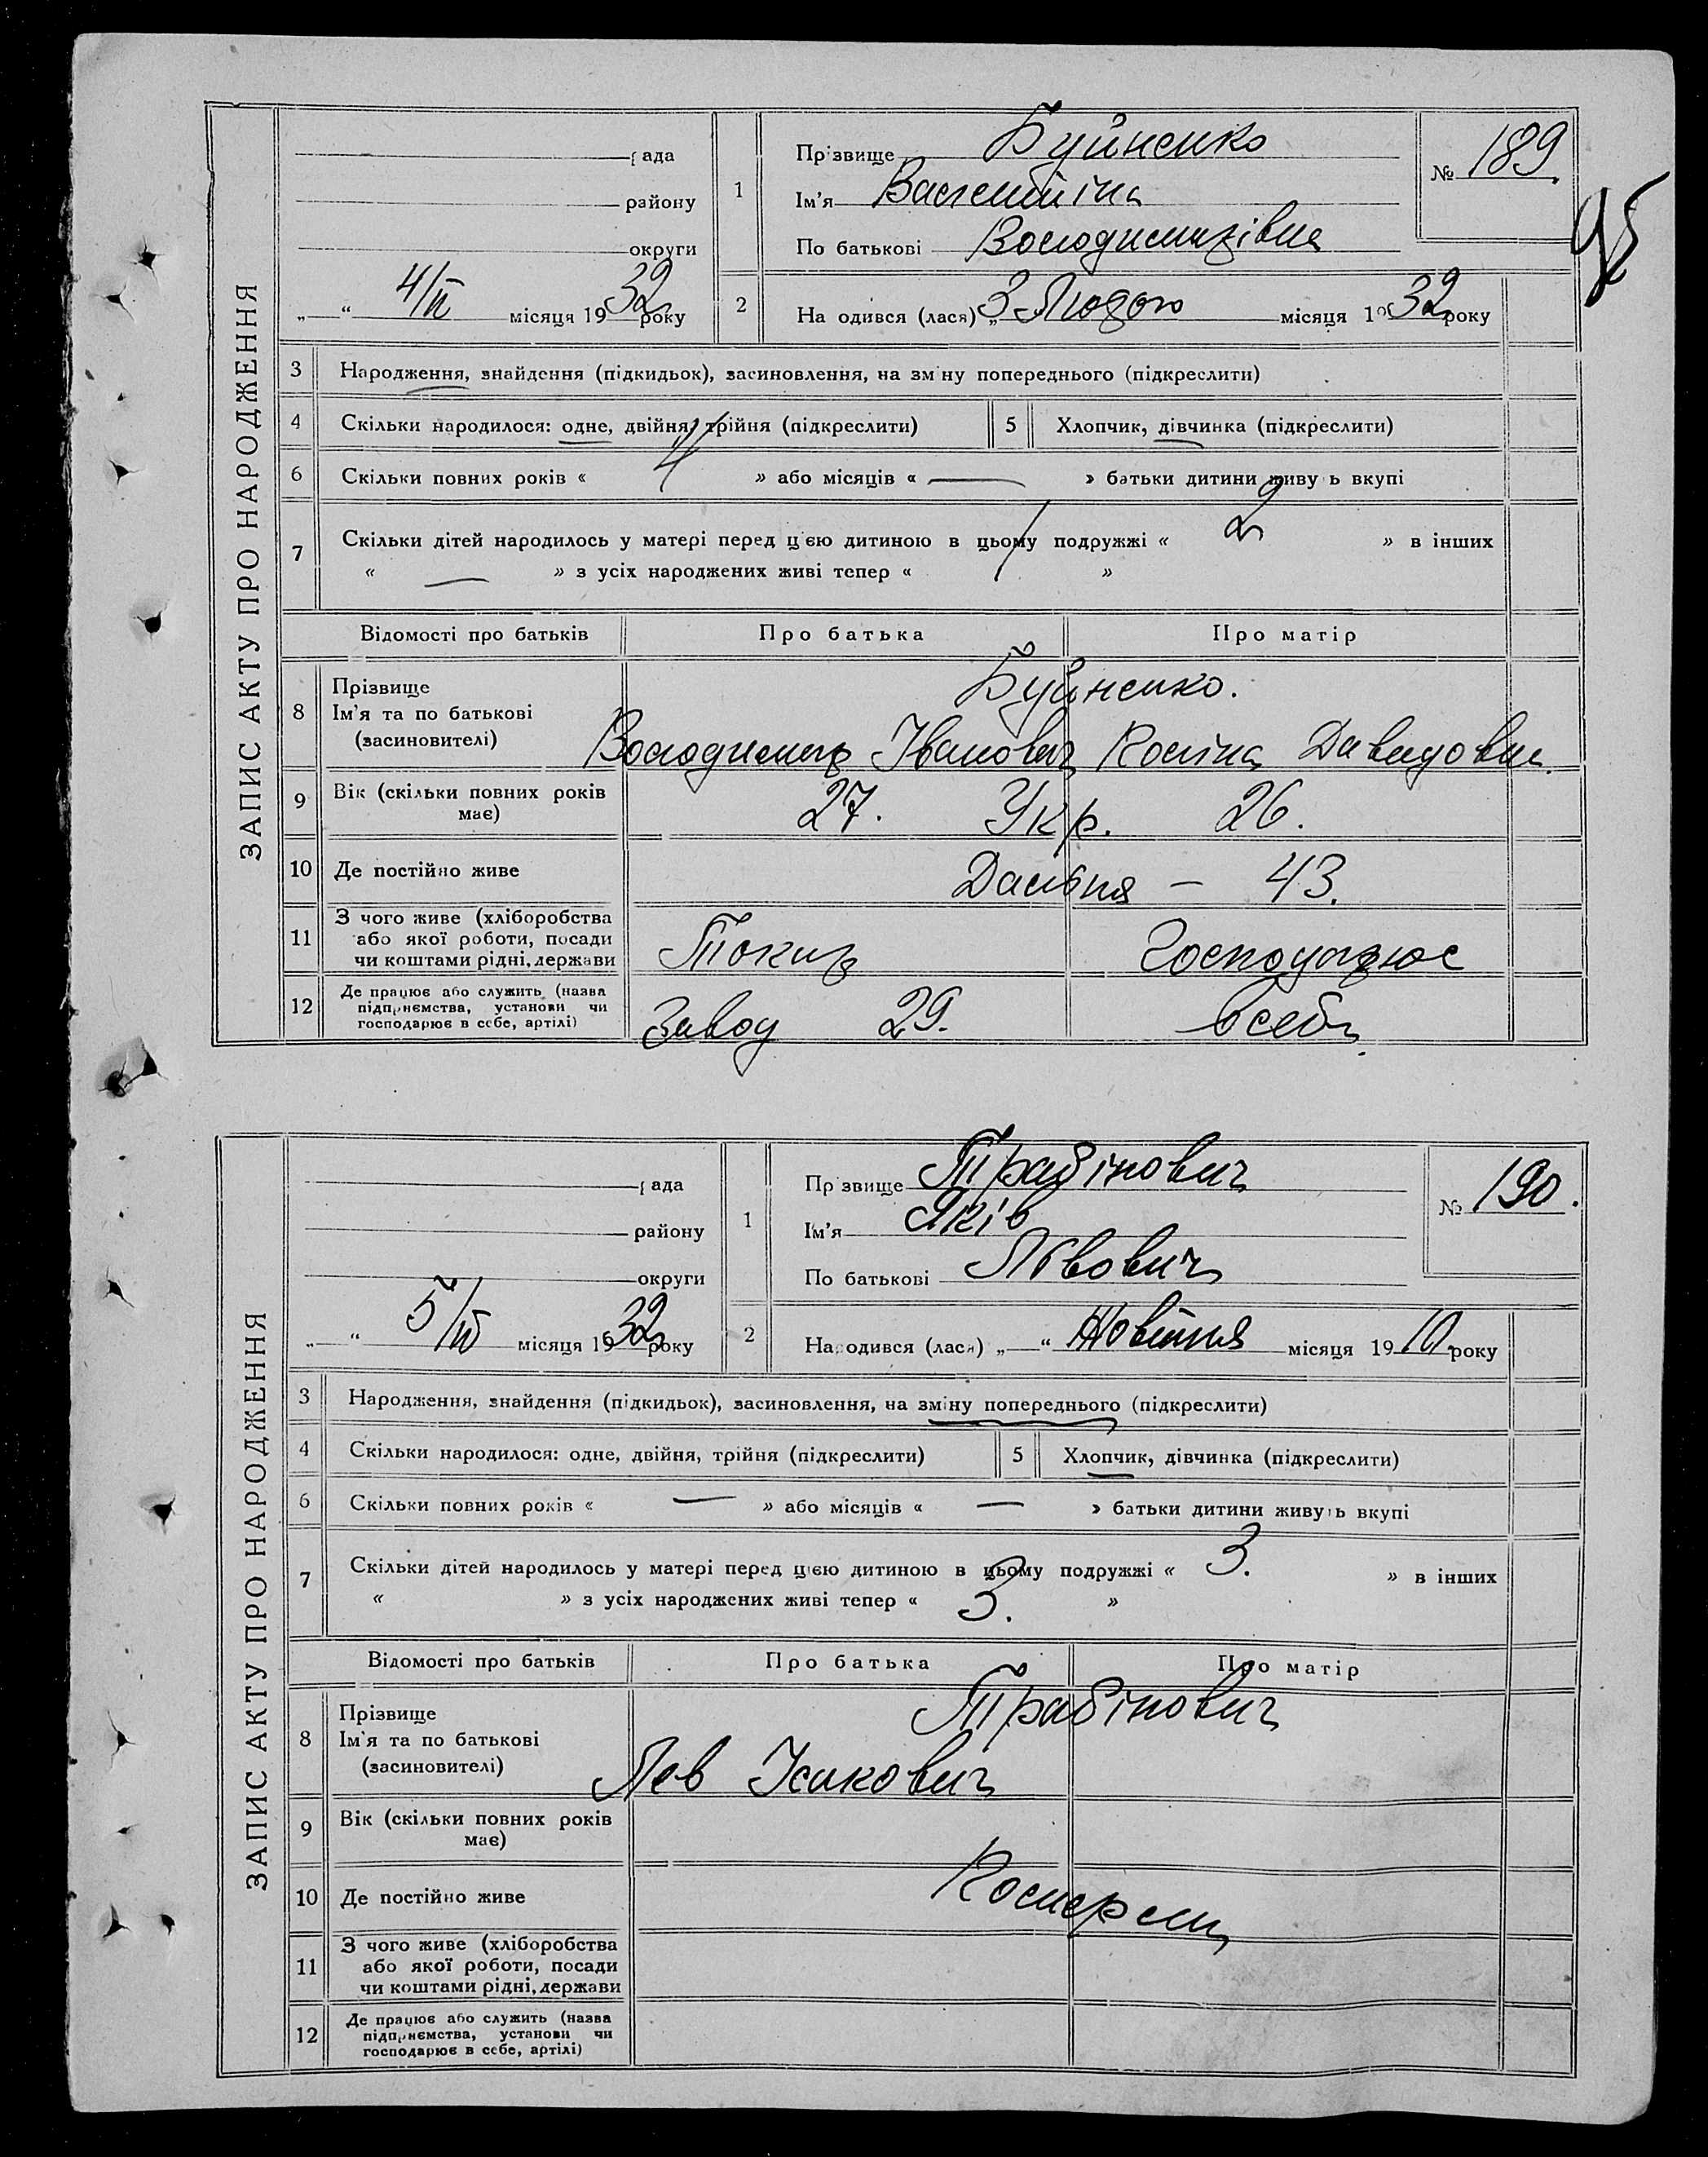 ЗАПИС АКТУ ПРО НАРОДЖЕННЯ
рада
району
округи
„ “ 4/ІІ місяця 1932 року
1
Прізвище Буйненко
Ім'я Валентіна
По батькові Володимирівна
№ 189.
95
2
На одився (лася) „3 Лютого місяця 1932 року
3 Народження, знайдення (підкидьок), засиновлення, на зміну попереднього (підкреслити)
4 Скільки народилося: одне, двійня, трійня (підкреслити)
5 Хлопчик, дівчинка (підкреслити)
6 Скільки повних років « 4 » або місяців « — » батьки дитини живуть вкупі
7 Скільки дітей народилось у матері перед цією дитиною в цьому подружжі « 2 » в інших
« — » з усіх народжених живі тепер « 1 »
Відомості про батьків Про батька Про матір
8 Прізвище
Ім'я та по батькові
(засиновителі)
Буйненко.
Володимир Іванович Давидовна
9 Вік (скільки повних років має)
27. Укр. 26.
10 Де постійно живе
Дальня — 43.
11 З чого живе (хліборобства
або якої роботи, посади
чи коштами рідні, держави
Токир Господарює
12 Де працює або служить (назва
підприємства, установи чи
господарює в себе, артілі)
Завод 29. в себе
ЗАПИС АКТУ ПРО НАРОДЖЕННЯ
рада
району
округи
„ “ 5/ІІ місяця 1932 року
1
Прізвище Трабінович
Ім'я Яків
По батькові Львович
№ 190.
2
Народився (лася) „—“ Жовтня місяця 1910 року
3 Народження, знайдення (підкидьок), засиновлення, на зміну попереднього (підкреслити)
4 Скільки народилося: одне, двійня, трійня (підкреслити)
5 Хлопчик, дівчинка (підкреслити)
6 Скільки повних років « — » або місяців « — » батьки дитини живуть вкупі
7 Скільки дітей народилось у матері перед цією дитиною в цьому подружжі « 3. » в інших
« » з усіх народжених живі тепер « 3. »
Відомості про батьків Про батька Про матір
8 Прізвище
Ім'я та по батькові
(засиновителі)
Трабінович
Лев Ісакович
9 Вік (скільки повних років має)
10 Де постійно живе
11 З чого живе (хліборобства
або якої роботи, посади
чи коштами рідні, держави
12 Де працює або служить (назва
підприємства, установи чи
господарює в себе, артілі)